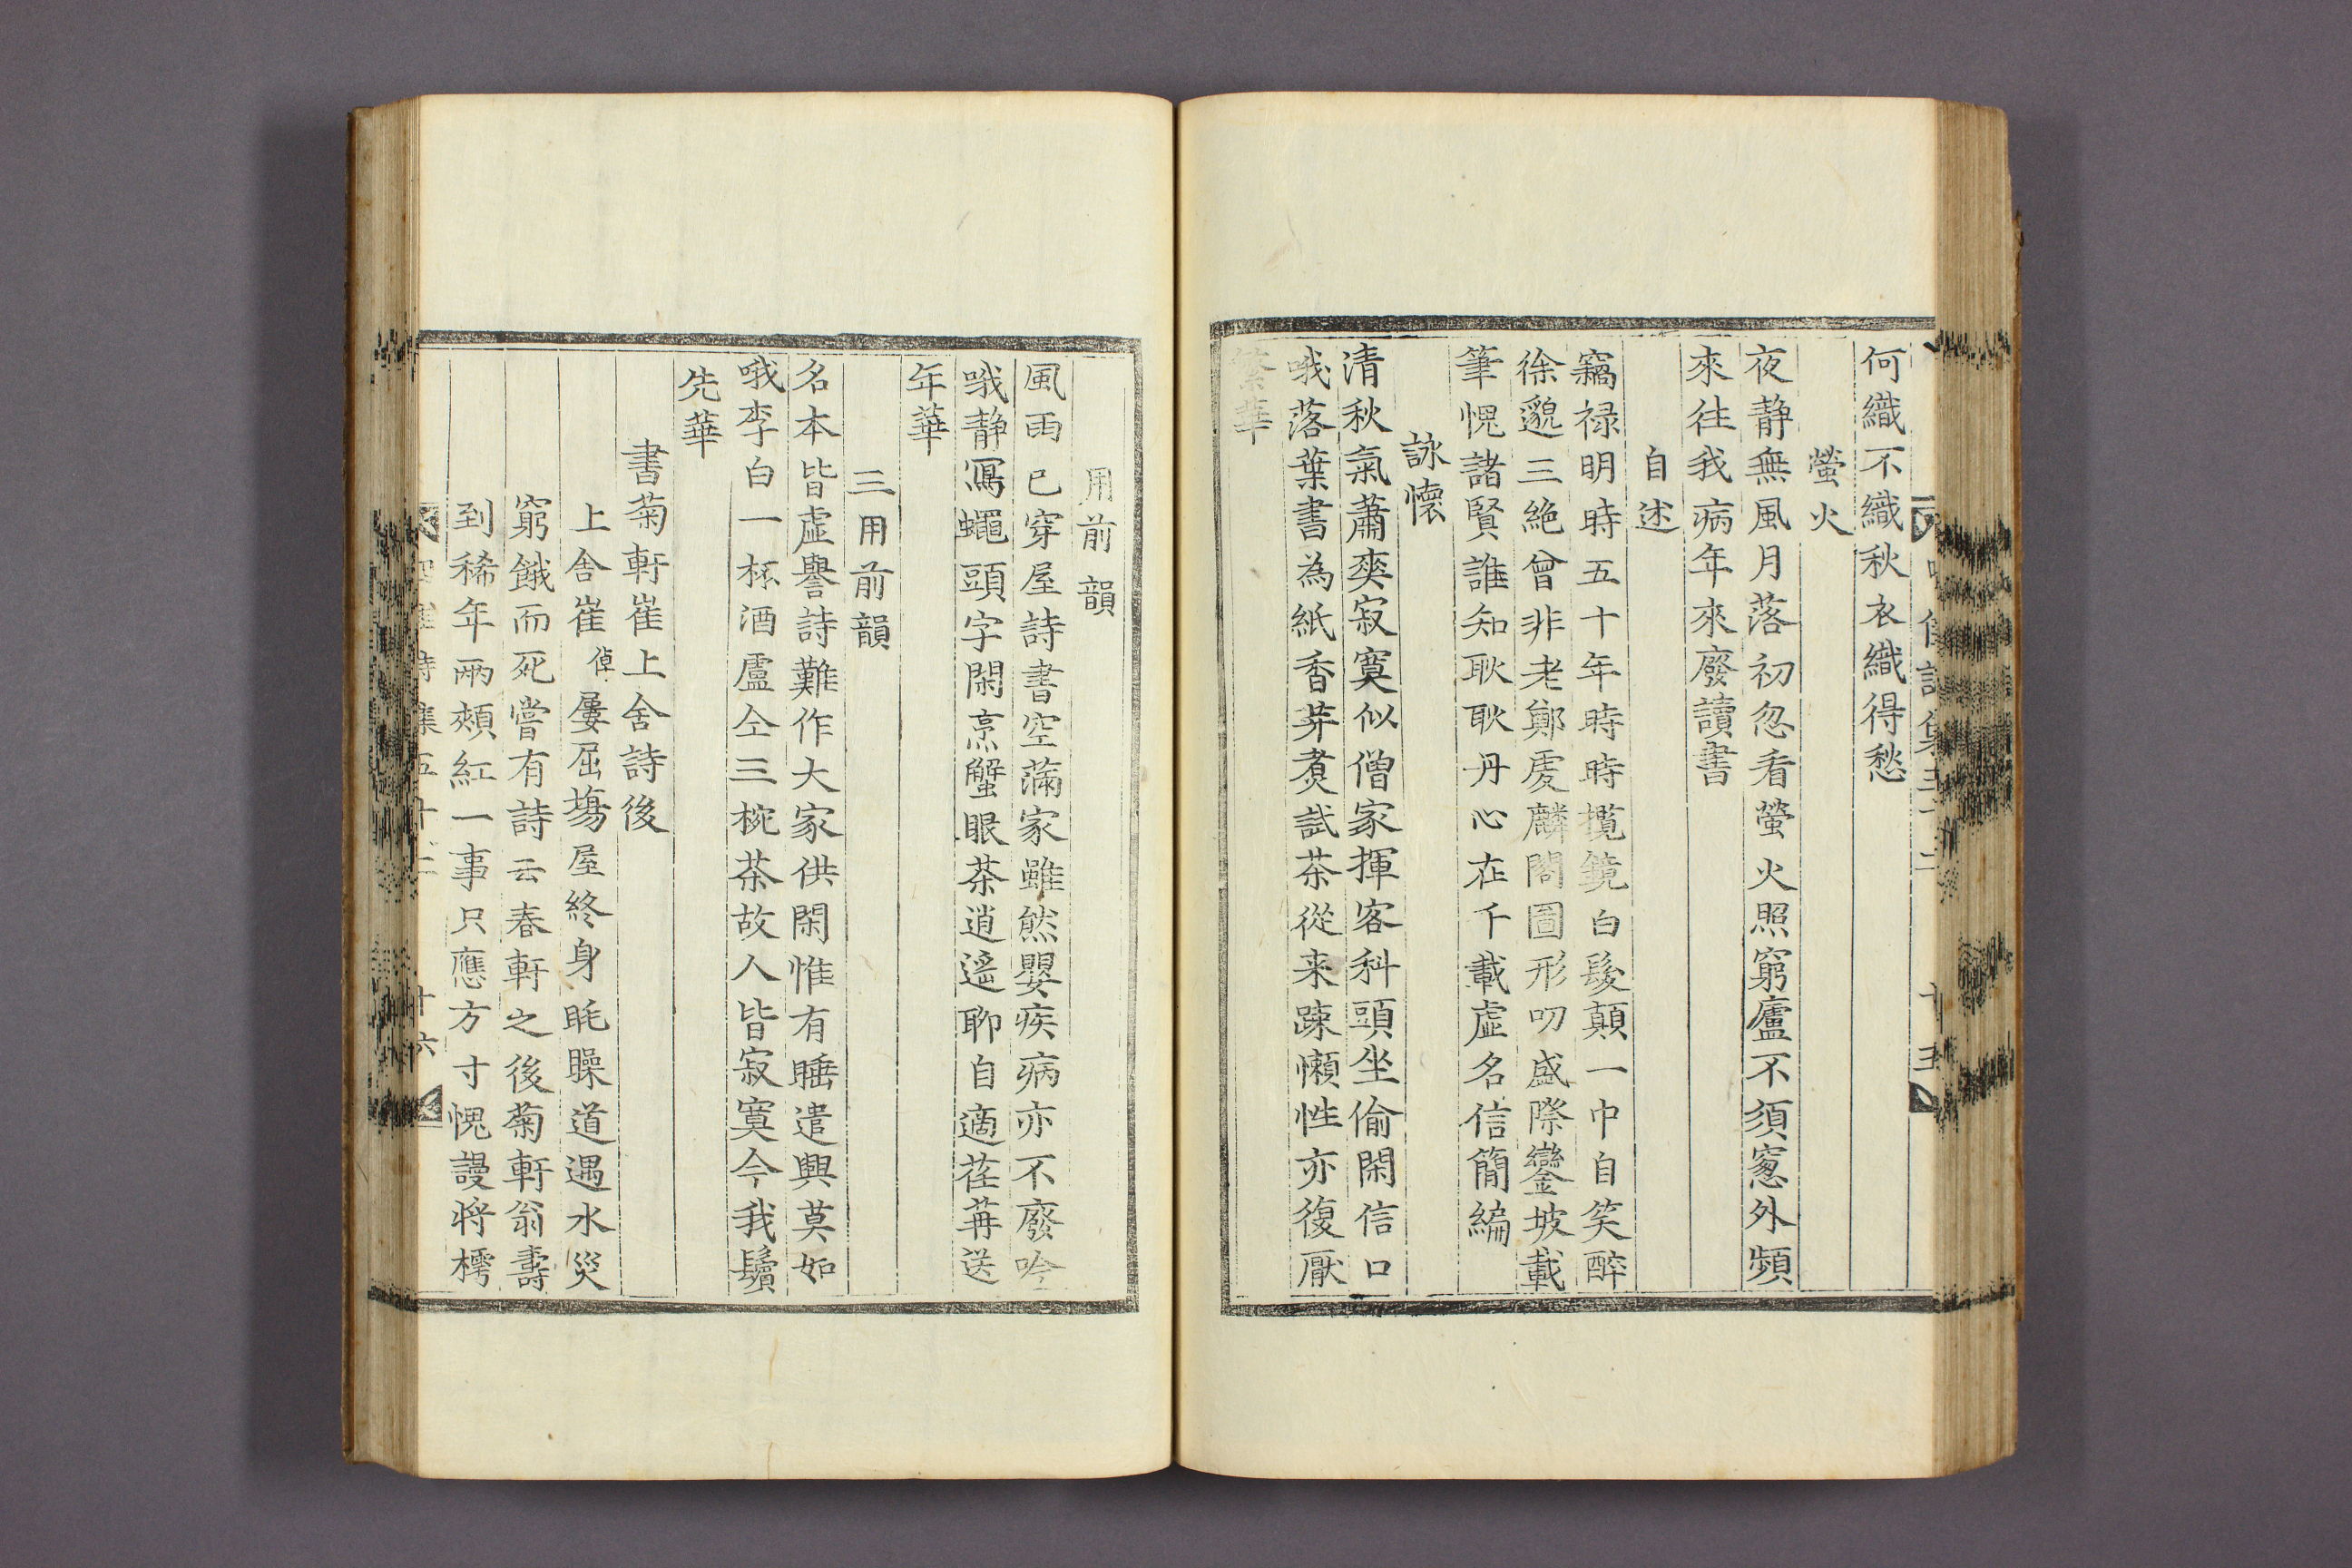 何織不織秋衣織得愁
螢火
夜静無風月落初忽看螢火照窮廬不須窓外頻
來往我病年來廢讀書
自述
竊禄明時五十年時時攬鏡白髮顛一巾自笑醉
徐邈三絶曾非老鄭虔麟閣圖形叨盛際鑾坡載
筆愧諸賢誰知耿耿丹心在千載虛名信簡編
詠懷
清秋氣蕭爽寂寞似僧家揮客科頭坐偷閑信口
哦落葉書為紙香芽煑試茶從来踈懶性亦復厭
繁華
用前韻
風雨已穿屋詩書空滿家雖然嬰疾病亦不廢吟
哦静寫蠅頭字閑烹蟹眼茶逍遙聊自適荏苒送
年華
三用前韻
名本皆虛譽詩難作大家供閑惟有睡遣興莫如
哦李白一杯酒盧仝三椀茶故人皆寂寞今我鬢
先華
書菊軒崔上舍詩後
上舍崔倬屢屈塲屋終身眊矂道遇水災
窮餓而死嘗有詩云春軒之後菊軒翁壽
到稀年兩頰紅一事只應方寸愧謾將樗
詩集五十二 十六